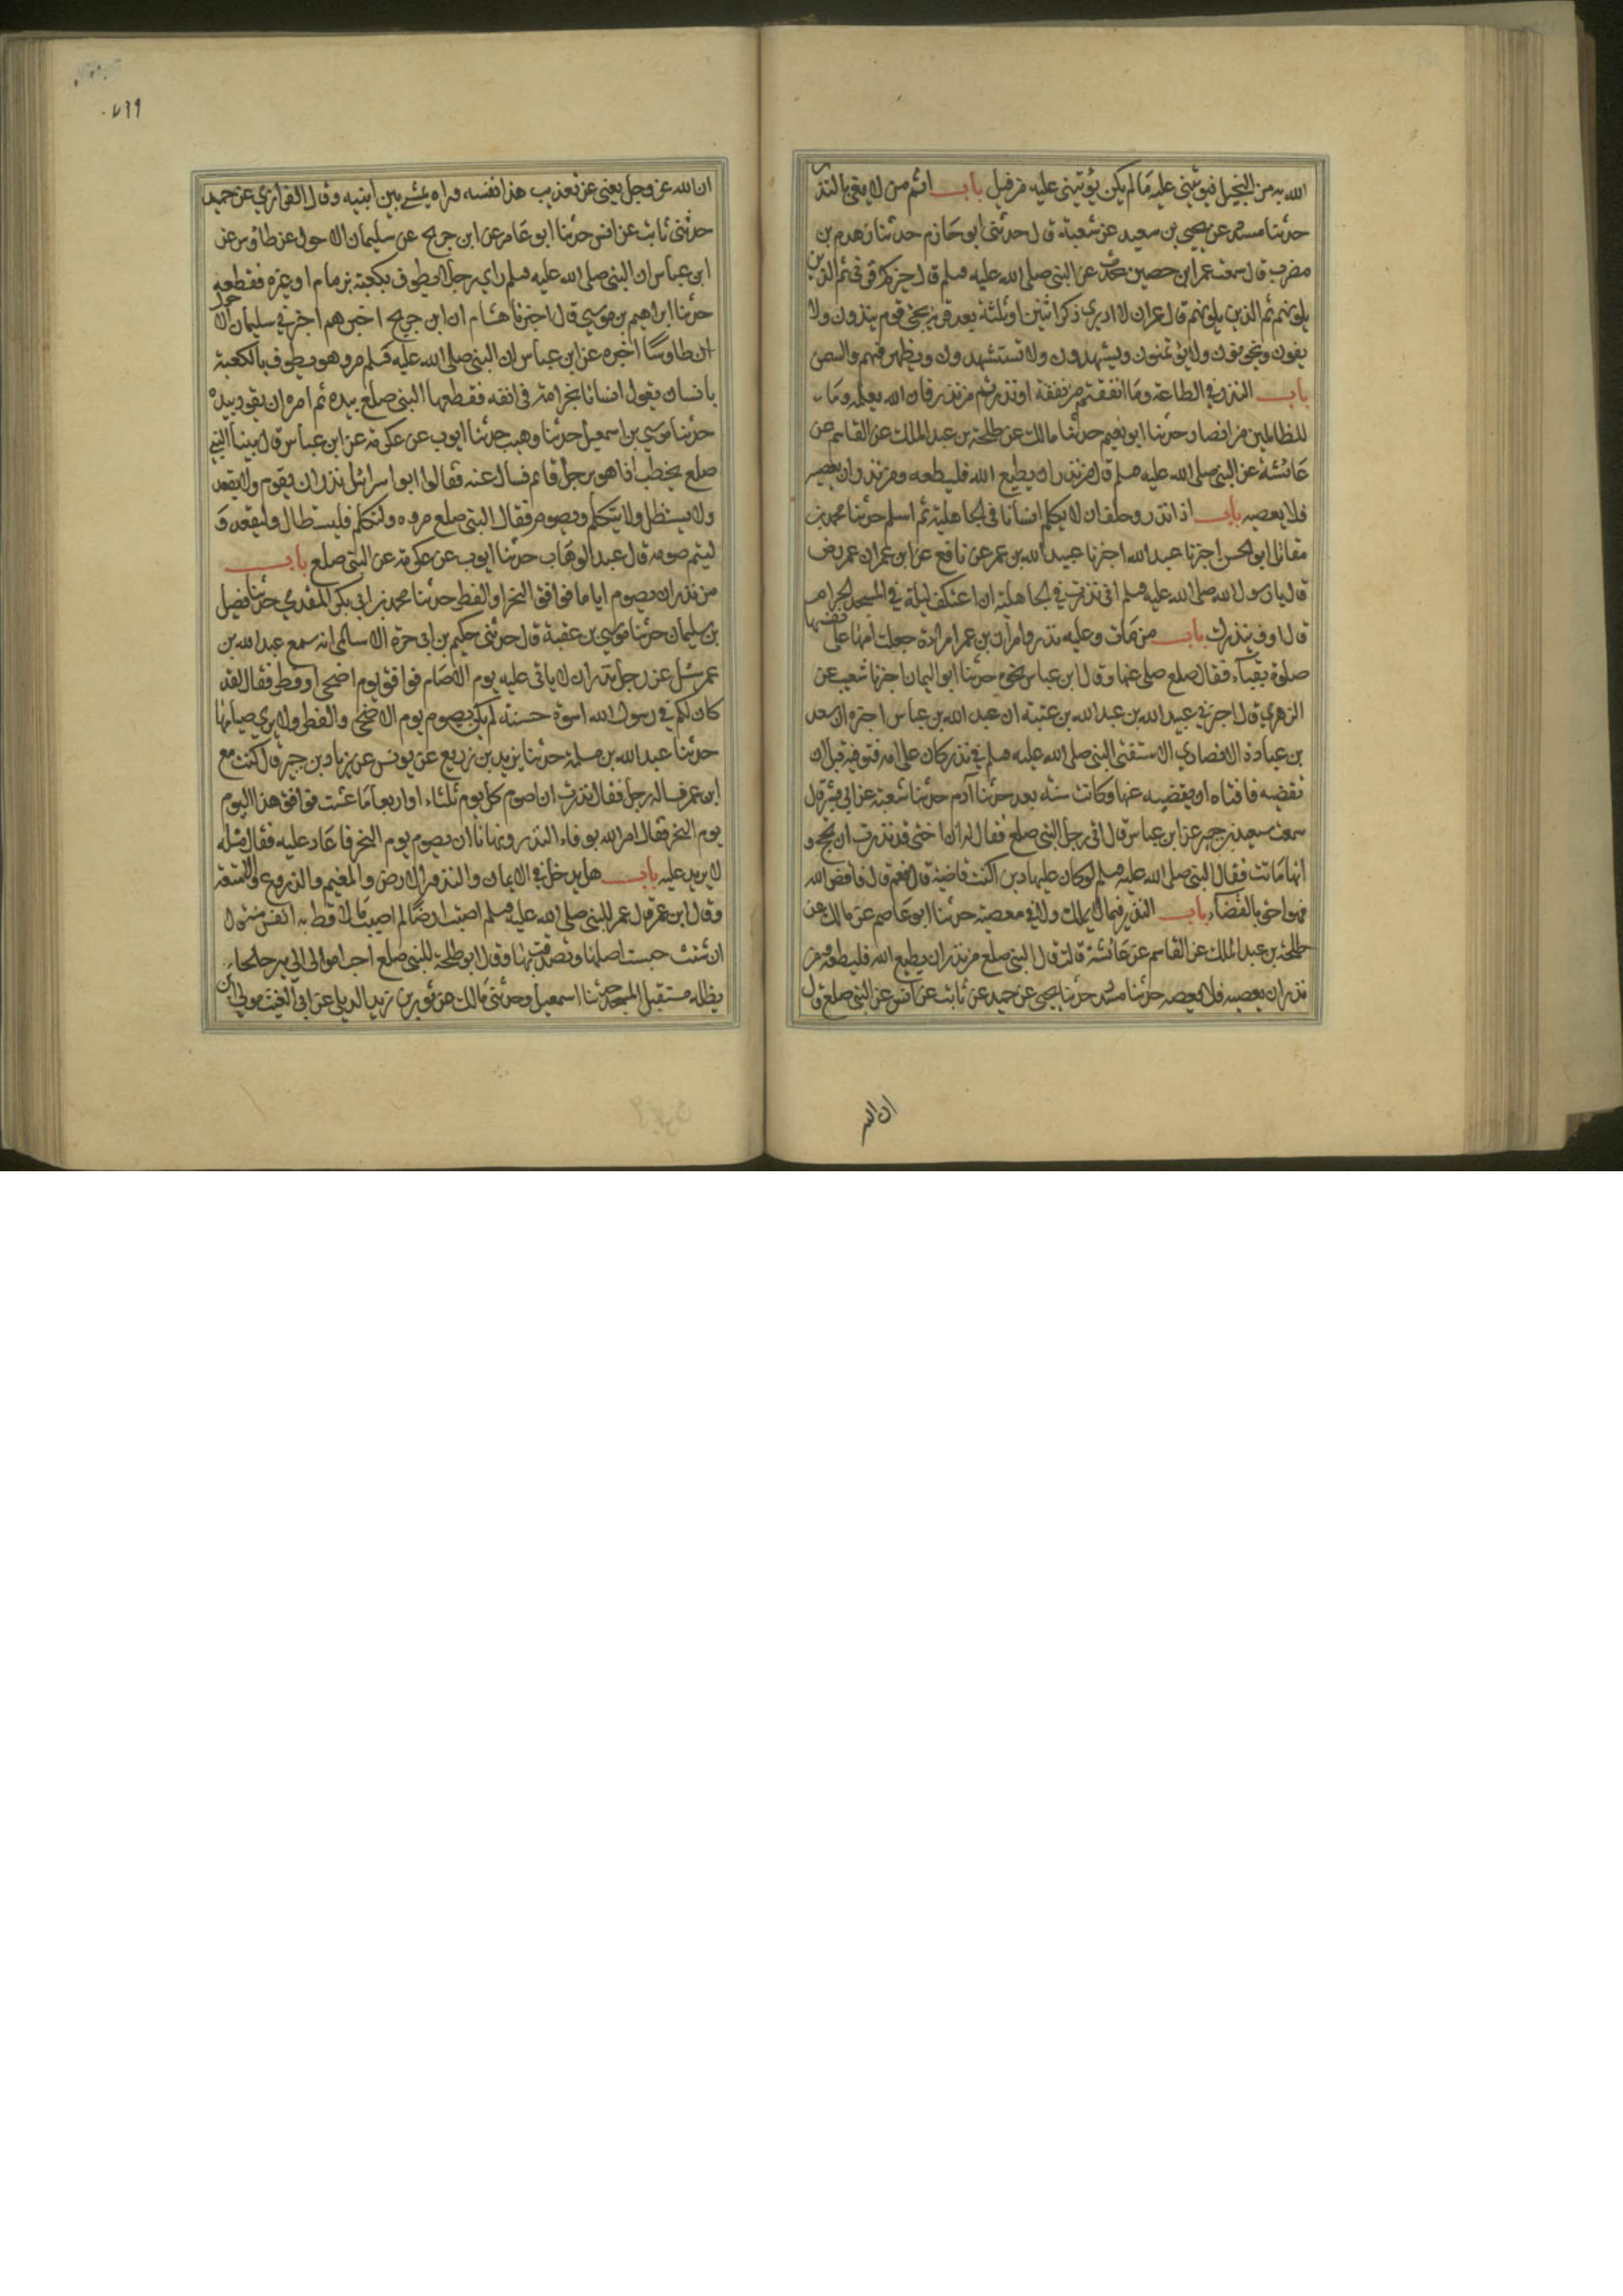 الله به من البخيل فيؤتيني عليه ما لم يكن يؤتيني عليه من قبل باب اثم من لا يفي بالنذر
حدثنا مسدد عن يحيى بن سعيد عن شعبة قال حدثني ابو حازم حدثنا زهدم بن
مضرب قال سمعت عمران بن حصين يحدث عن النبي صلى الله عليه وسلم قال خيركم قرني ثم الذين
يلونهم ثم الذين يلونهم قال عمران لا ادري ذكر اثنين او ثلثة بعد قرنه ثم يجئ قوم ينذرون ولا
يفون ويخونون ولا يؤتمنون ويشهدون ولا تستشهدون ويظهر فيهم والسمن
باب النذر في الطاعة وما انفقتم من نفقة او نذرتم من نذر فان الله يعلمه وما
للظالمين من انصار حدثنا ابو نعيم حدثنا مالك عن طلحة بن عبد الملك عن القاسم عن
عائشة عن النبي صلى الله عليه وسلم قال من نذر ان يطيع الله فليطعه ومن نذر ان يعصيه
فلا يعصيه باب اذا نذر وحلف ان لا يكلم انسانا في الجاهلية ثم اسلم حدثنا محمد بن
مقاتل ابو الحسن اخبرنا عبد الله اخبرنا عبيد الله بن عمر عن نافع عن ابن عمر ان عمر رض
قال يا رسول الله صلى الله عليه وسلم اني نذرت في الجاهلية ان اعتكف ليلة في المسجد الحرام
قال اوف بنذرك باب من مات وعليه نذر وامر ابن عمر امراة جعلت امها على نفسها
صلوة بقباء فقال صلع صلى عنها وقال ابن عباس نحوه حدثنا ابو اليمان اخبرنا شعيب عن
الزهري قال اخبرني عبيد الله بن عبد الله بن عتبة ان عبد الله بن عباس اخبره ان سعد
بن عبادة الانصاري الا ستفتى النبي صلى الله عليه وسلم في نذر كان على امه فتوفيت قبل ان
تقضيه فافتاه ان يقضيه عنها وكانت سنة بعد حدثنا آدم حدثنا شعبة عن ابي بشر قال
سمعت سعيد بن جبير عن ابن عباس قال اتى رجل النبي صلع فقال له ان اختي قد نذرت ان تحج و
انها ماتت فقال النبي صلى الله عليه وسلم لو كان عليها دين اكنت قاضية قال نعم قال فاقض الله
فهو احق بالقضاء باب النذر فيما لا يملك ولا في معصية حدثنا ابو عاصم عن مالك عن
طلحة بن عبد الملك عن القاسم عن عائشة قالت قال النبي صلع من نذر ان يطيع الله فليطعه ومن
نذر ان يعصيه فلا يعصه حدثنا مسدد حدثنا يحيى عن حميد عن ثابت عن انس عن النبي صلع قال
ان الله
٧١٩
ان الله عز وجل يعني عن تعذيب هذا نفسه وراه يمشي بين ابنيه وقال الفزاري عن حميد
حدثني ثابت عن انس حدثنا ابو عامر عن ابن جريج عن سليمان الاحول عن طاوس عن
ابن عباس ان النبي صلى الله عليه وسلم راي رجلا يطوف بكعبة بزمام او غيره فقطعه
حدثنا ابراهيم بن موسي قال اخبرنا هشام ان ابن جريج اخبرهم اخبرني سليمان الاحول
ان طاوسا اخبره عن ابن عباس ان النبي صلى الله عليه وسلم مر وهو يطوف بالكعبة
بانسان يقول انسانا بخزامة في انفه فقطعها النبي صلع بيده ثم امره ان يقود بيده
حدثنا موسي بن اسمعيل حدثنا وهيب حدثنا ايوب عن عكرمة عن ابن عباس قال بينا النبي
صلع يخطب اذا هو برجل قائم فسال عنه فقالوا ابو اسرائيل نذر ان يقوم ولا يقعد
ولا يستظل ولا يتكلم ويصوم فقال النبي صلع مروه ولتكلم فليستظال وليقعد و
ليتم صومه قال عبد الوهاب حدثنا ايوب عن عكرمة عن النبي صلع باب
من نذر ان يصوم اياما فوافق النحر او الفطر حدثنا محمد بن ابي بكر المقدمي حدثنا فضيل
بن سليمان حدثنا موسي بن عقبة قال حدثني حكيم بن ابي حرة الاسلمي انه سمع عبد الله بن
عمر سئل عن رجل نذر ان لا ياتي عليه يوم الا صام فوافق يوم اضحى او فطر فقال لقد
كان لكم في رسول الله اسوة حسنة لم يكن يصوم يوم الاضحى والفطر ولا يري صيامها
حدثنا عبد الله بن مسلمة حدثنا يزيد بن زريع عن يونس عن زياد بن جبير قال كنت مع
ابن عمر فساله رجل فقال نذرت ان اصوم كل يوم ثلثاء او اربعا ما عشت فوافق هذا اليوم
يوم النحر فقال امر الله بوفاء النذر ونهانا ان يصوم يوم النحر فاعاد عليه فقال مثله
لا يزيد عليه باب هل يدخل في الايمان والنذور الارض والغنم والزروع والامتعة
وقال ابن عمر قال عمر للنبي صلى الله عليه وسلم اصبت ارضا لم اصب مالا قط به انفس منه قال
ان شئت حبست اصلها وتصدقت بها وقال ابو طلحة للنبي صلع احب اموالي الي بيرحا لحائط
يظله مستقبل المسجد حدثنا اسمعيل وحدثني مالك عن ثور بن زيد الديلي عن ابي الغيث مولي ابن